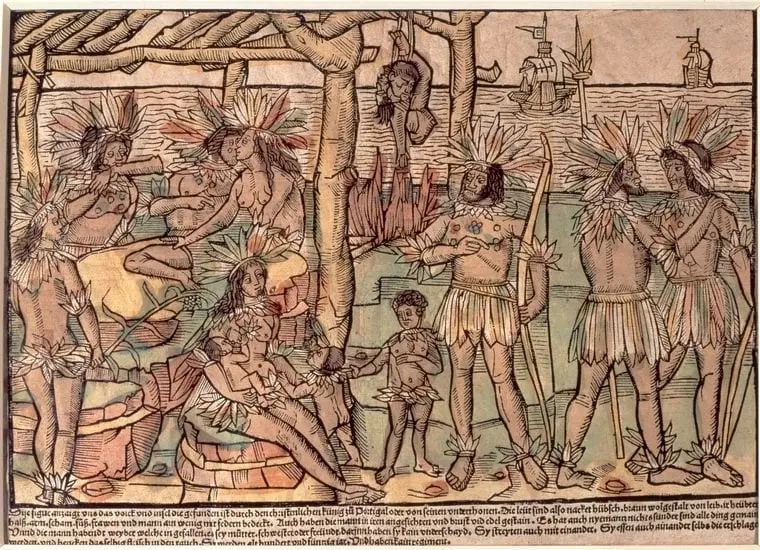 Dise figur anzaigt uns das volck und insel die gefunden ist durch den christenlichen künig zů Portigal oder von seinen underthonen. Die leüt sind also nacket hübsch. braun wolgestalt von leib. ir heübter
halß. arm. scham. füß. frawen und mann ain wenig mit federn bedeckt. Auch haben die mann in iren angesichten und brust vil edel gestain. Es hat auch nyemann nichts sunder sind alle ding gemain
Unnd die mann habendt weyber welche in gefallen. es sey mütter. schwester oder freündt. darinn haben sy kain underschayd. Sy streyten auch mit einander. Sy essen auch ainander selbs die erschlage
werden. und hencken das selbig fleisch in den rauch. Sy werden alt hundert und fünfftzig iar. Und haben kain regiment.